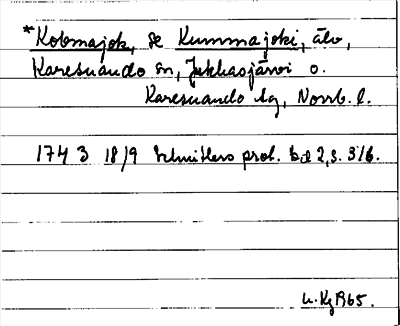 *Kobmajok, se Kummajoki, älv,
Karesuando sn, Jukkasjärvi o.
Karesuando tg, Norrb. l.
1743 18/9 Schnitlers prot. bd 2, s. 316.